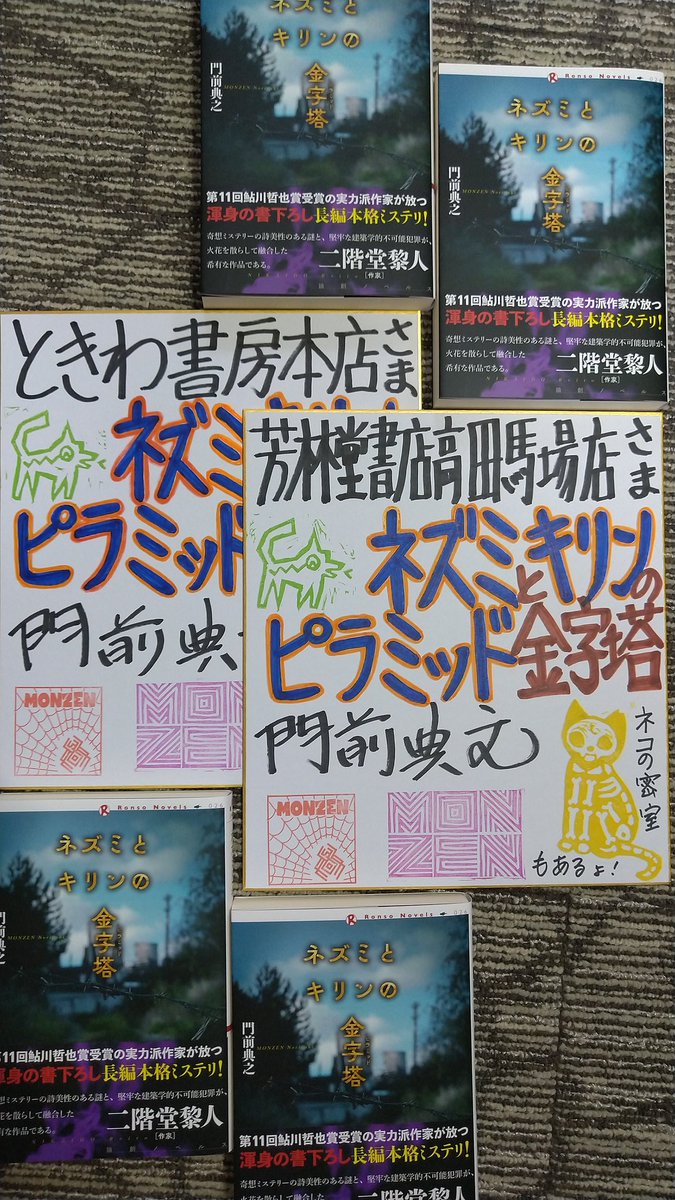 ネズミと
キリンの
金字塔
門前典之
第11回鮎川哲也賞受賞の実力派作家が放つ
渾身の書下ろし長編本格ミステリ!
奇想ミステリーの詩美性のある謎と、堅牢な建築学的不可能犯罪が、
火花を散らして融合した
希有な作品である。
二階堂黎人
[作家]
論創ノベルス
Ronso Novels 026
ネズミと
キリンの
金字塔
門前典之
第11回鮎川哲也賞受賞の実力派作家が放つ
渾身の書下ろし長編本格ミステリ!
奇想ミステリーの詩美性のある謎と、堅牢な建築学的不可能犯罪が、
火花を散らして融合した
希有な作品である。
二階堂黎人
[作家]
論創ノベルス
ときわ書房本店さま
ネズミ
ピラミッド
門前典
MONZEN
MON
ZEN
芳林堂書店高田馬場店さま
ネズミとキリンの
ピラミッド金字塔
門前典之
MONZEN
MON
ZEN
ネコの密室
もあるよ!
Ronso Novels 026
ネズミと
キリンの
金字塔
門前典之
第11回鮎川哲也賞受賞の実力派作家が放つ
渾身の書下ろし長編本格ミステリ!
奇想ミステリーの詩美性のある謎と、堅牢な建築学的不可能犯罪が、
火花を散らして融合した
希有な作品である。
二階堂黎人
[作家]
論創ノベルス
Ronso Novels 026
ネズミと
キリンの
金字塔
門前典之
第11回鮎川哲也賞受賞の実力派作家が放つ
渾身の書下ろし長編本格ミステリ!
奇想ミステリーの詩美性のある謎と、堅牢な建築学的不可能犯罪が、
火花を散らして融合した
二階堂黎人